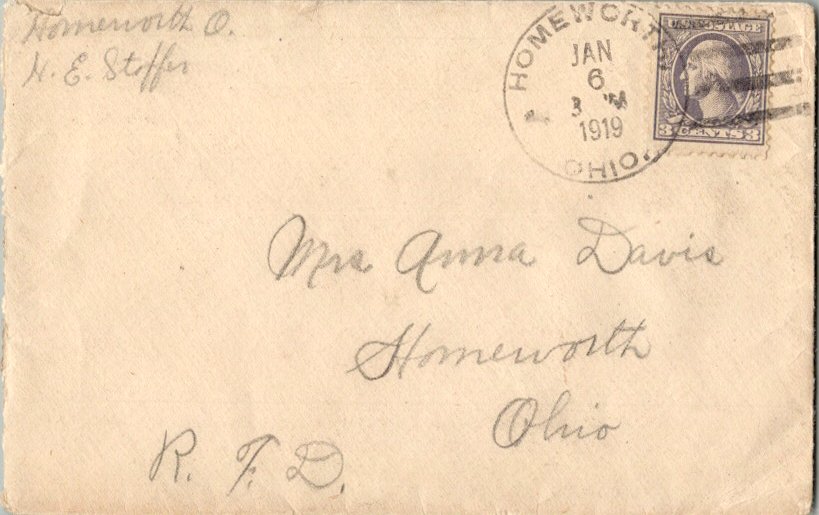 Homeworth O.
H. E. Stoffer
HOMEWORTH
JAN
6
3 PM
1919
OHIO.
U.S. POSTAGE
3 CENTS 3
Mrs Anna Davis
Homeworth
Ohio
R. F. D.